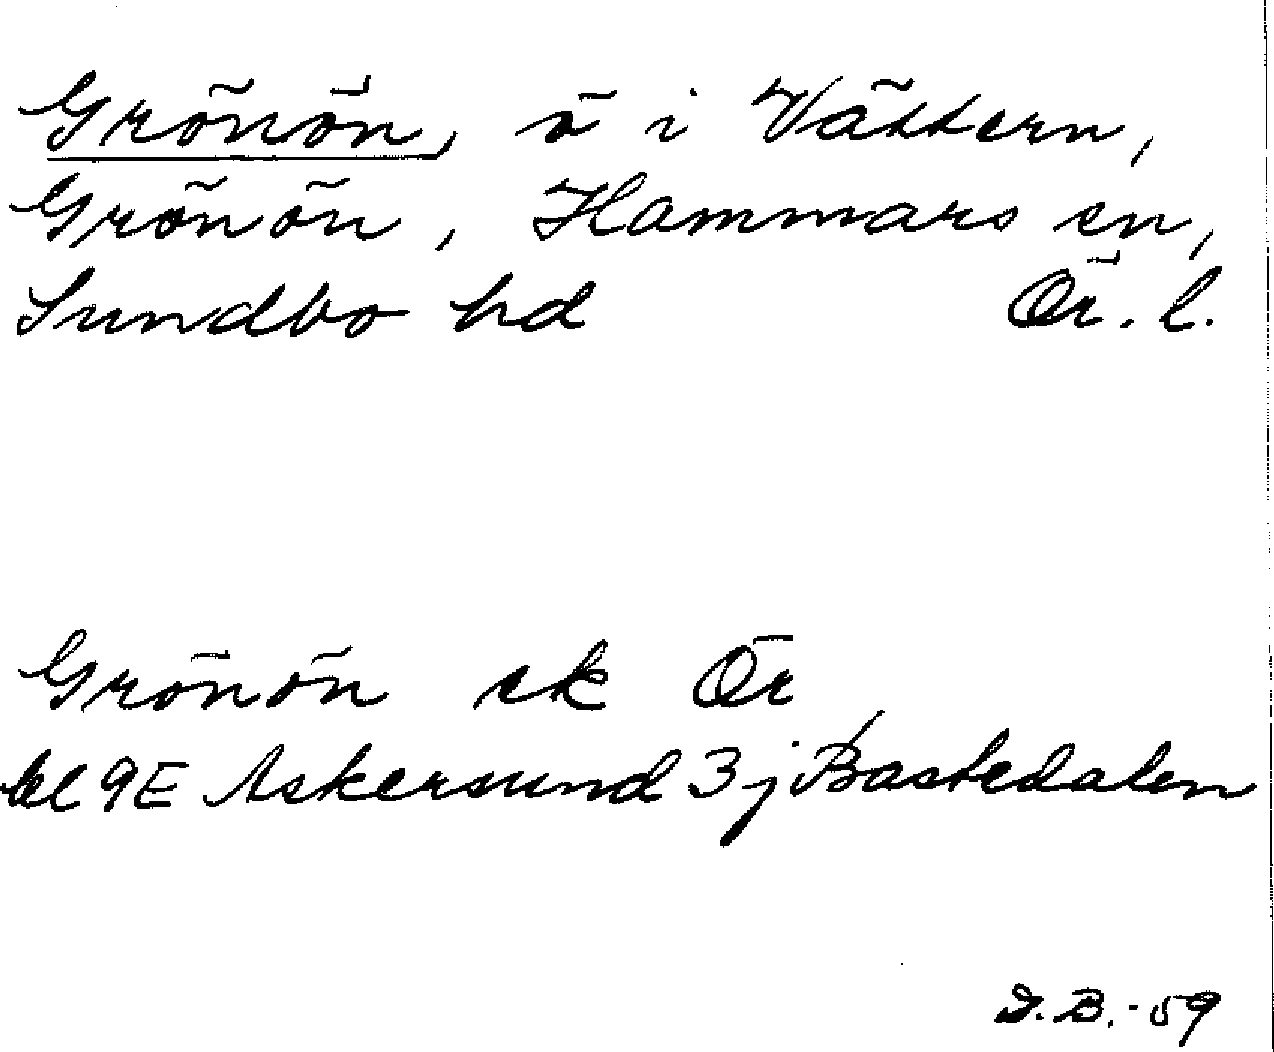 Grönön, ö i Vättern,
Grönön, Hammars sn,
Sundbo hd Ör. l.
Grönön ek Ör
bl 9E Askersund 3j Bastedalen
D.B.-59